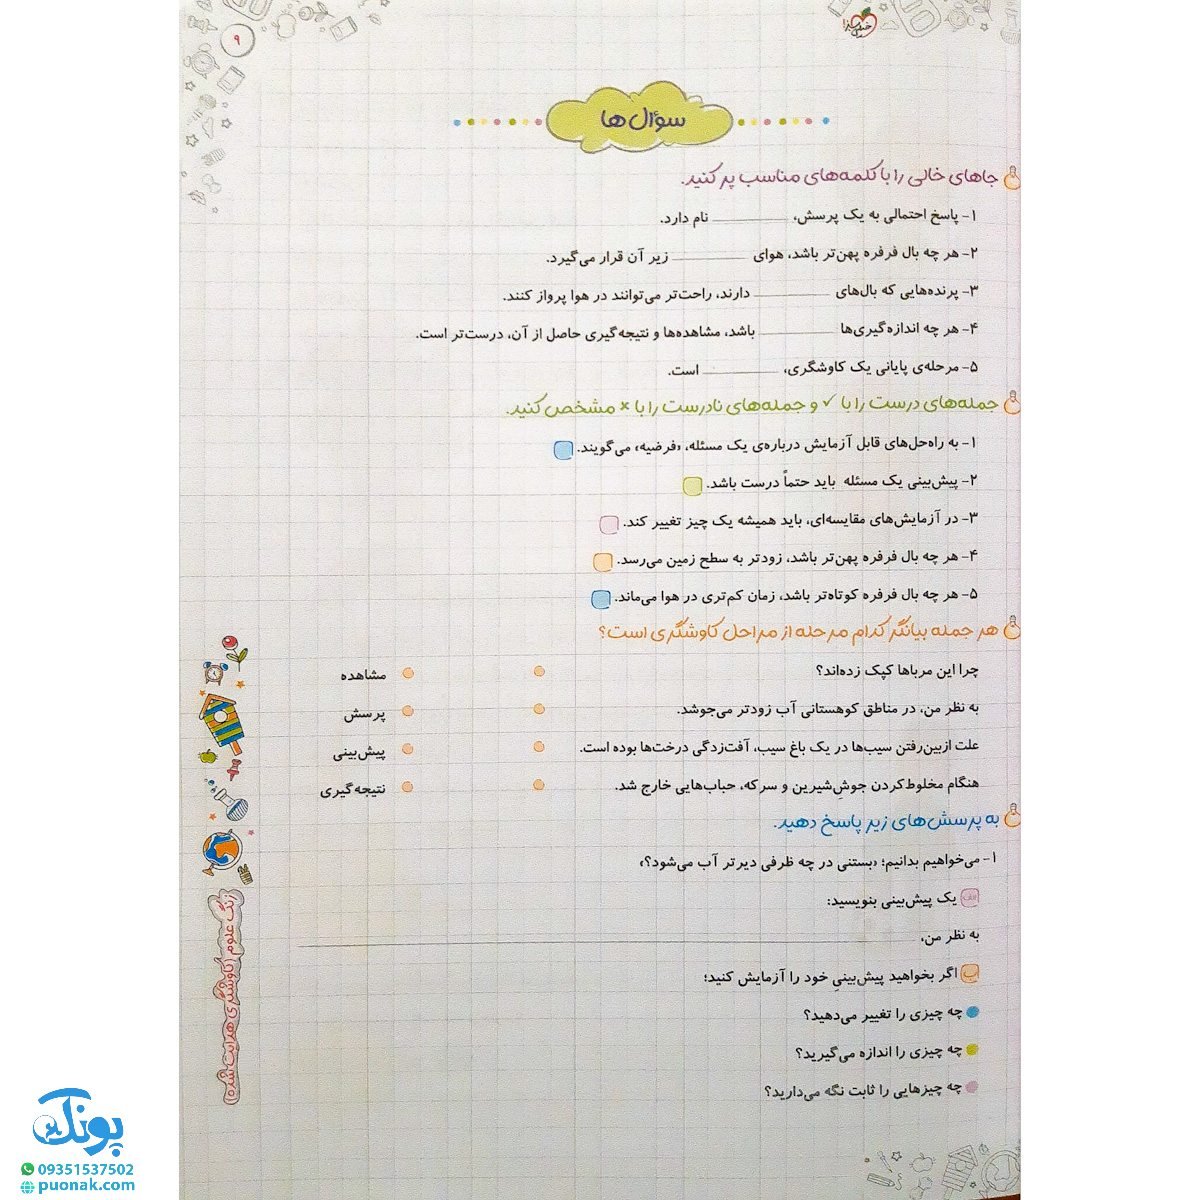 ۹
خیلی سبز
سؤال‌ها
جاهای خالی را با کلمه‌های مناسب پر کنید.
۱- پاسخ احتمالی به یک پرسش، ________ نام دارد.
۲- هر چه بال فرفره پهن‌تر باشد، هوای ________ زیر آن قرار می‌گیرد.
۳- پرنده‌هایی که بال‌های ________ دارند، راحت‌تر می‌توانند در هوا پرواز کنند.
۴- هر چه اندازه‌گیری‌ها ________ باشد، مشاهده‌ها و نتیجه‌گیری حاصل از آن، درست‌تر است.
۵- مرحله‌ی پایانی یک کاوشگری، ________ است.
جمله‌های درست را با ✓ و جمله‌های نادرست را با × مشخص کنید.
۱- به راه‌حل‌های قابل آزمایش درباره‌ی یک مسئله، «فرضیه» می‌گویند.
۲- پیش‌بینی یک مسئله باید حتماً درست باشد.
۳- در آزمایش‌های مقایسه‌ای، باید همیشه یک چیز تغییر کند.
۴- هر چه بال فرفره پهن‌تر باشد، زودتر به سطح زمین می‌رسد.
۵- هر چه بال فرفره کوتاه‌تر باشد، زمان کم‌تری در هوا می‌ماند.
هر جمله بیانگر کدام مرحله از مراحل کاوشگری است؟
چرا این مرباها کپک زده‌اند؟ مشاهده
به نظر من، در مناطق کوهستانی آب زودتر می‌جوشد. پرسش
علت ازبین‌رفتن سیب‌ها در یک باغ سیب، آفت‌زدگی درخت‌ها بوده است. پیش‌بینی
هنگام مخلوط‌کردن جوش‌شیرین و سرکه، حباب‌هایی خارج شد. نتیجه‌گیری
به پرسش‌های زیر پاسخ دهید.
۱- می‌خواهیم بدانیم؛ «بستنی در چه ظرفی دیرتر آب می‌شود؟»
الف یک پیش‌بینی بنویسید:
به نظر من، ________
ب اگر بخواهید پیش‌بینیِ خود را آزمایش کنید؛
چه چیزی را تغییر می‌دهید؟
چه چیزی را اندازه می‌گیرید؟
چه چیزهایی را ثابت نگه می‌دارید؟
زنگ علوم (کاوشگری هدایت شده)
پونک
09351537502
puonak.com